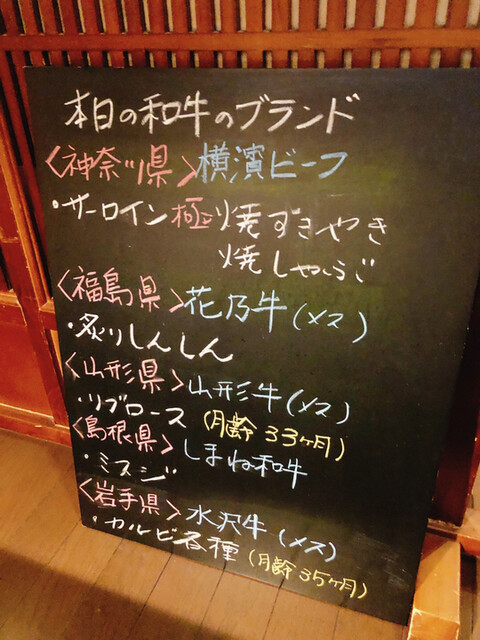 本日の和牛のブランド
〈神奈川県〉横濱ビーフ
・サーロイン極上焼すきやき
焼しゃぶ
〈福島県〉花乃牛(メス)
・炙りしんしん
〈山形県〉山形牛(メス)
・リブロース(月齢33ヶ月)
〈島根県〉しまね和牛
・ミスジ
〈岩手県〉水沢牛(メス)
・カルビ各種(月齢35ヶ月)